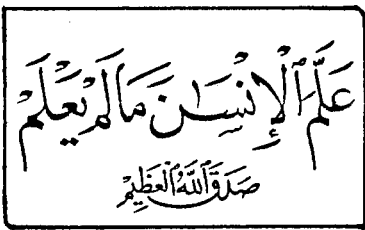 عَلَّمَ ٱلْإِنسَٰنَ مَا لَمْ يَعْلَمْ
صَدَقَ ٱللَّهُ ٱلْعَظِيمْ